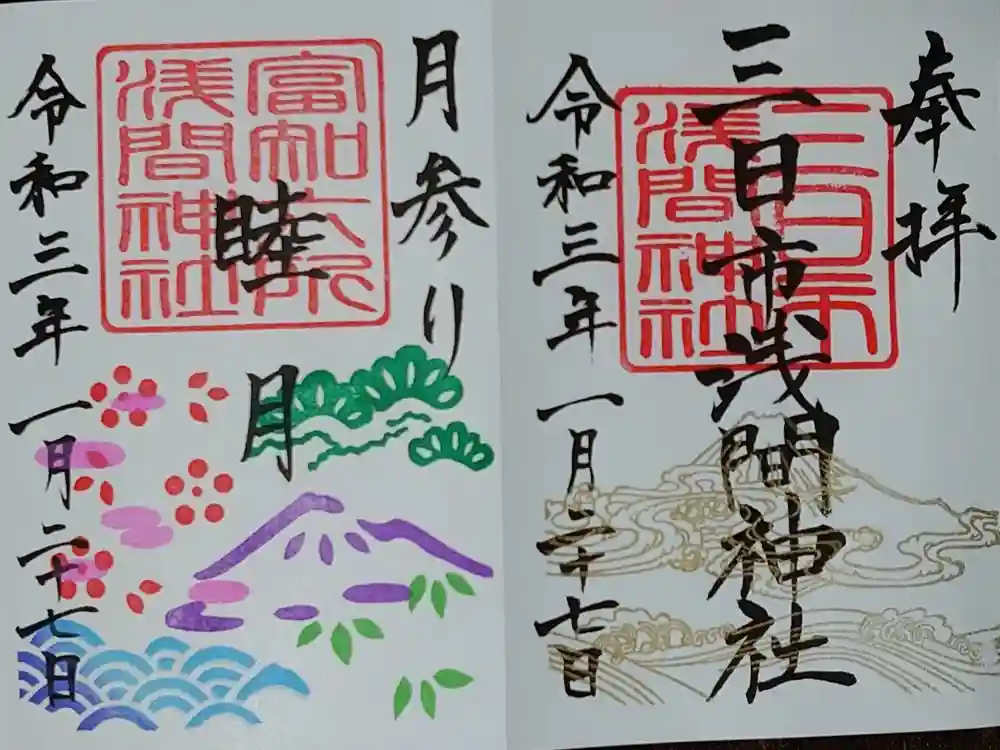 月参り
睦月
富知六所
浅間神社
令和三年一月二十七日
奉拝
三日市浅間神社
三日市
浅間神社
令和三年一月二十七日